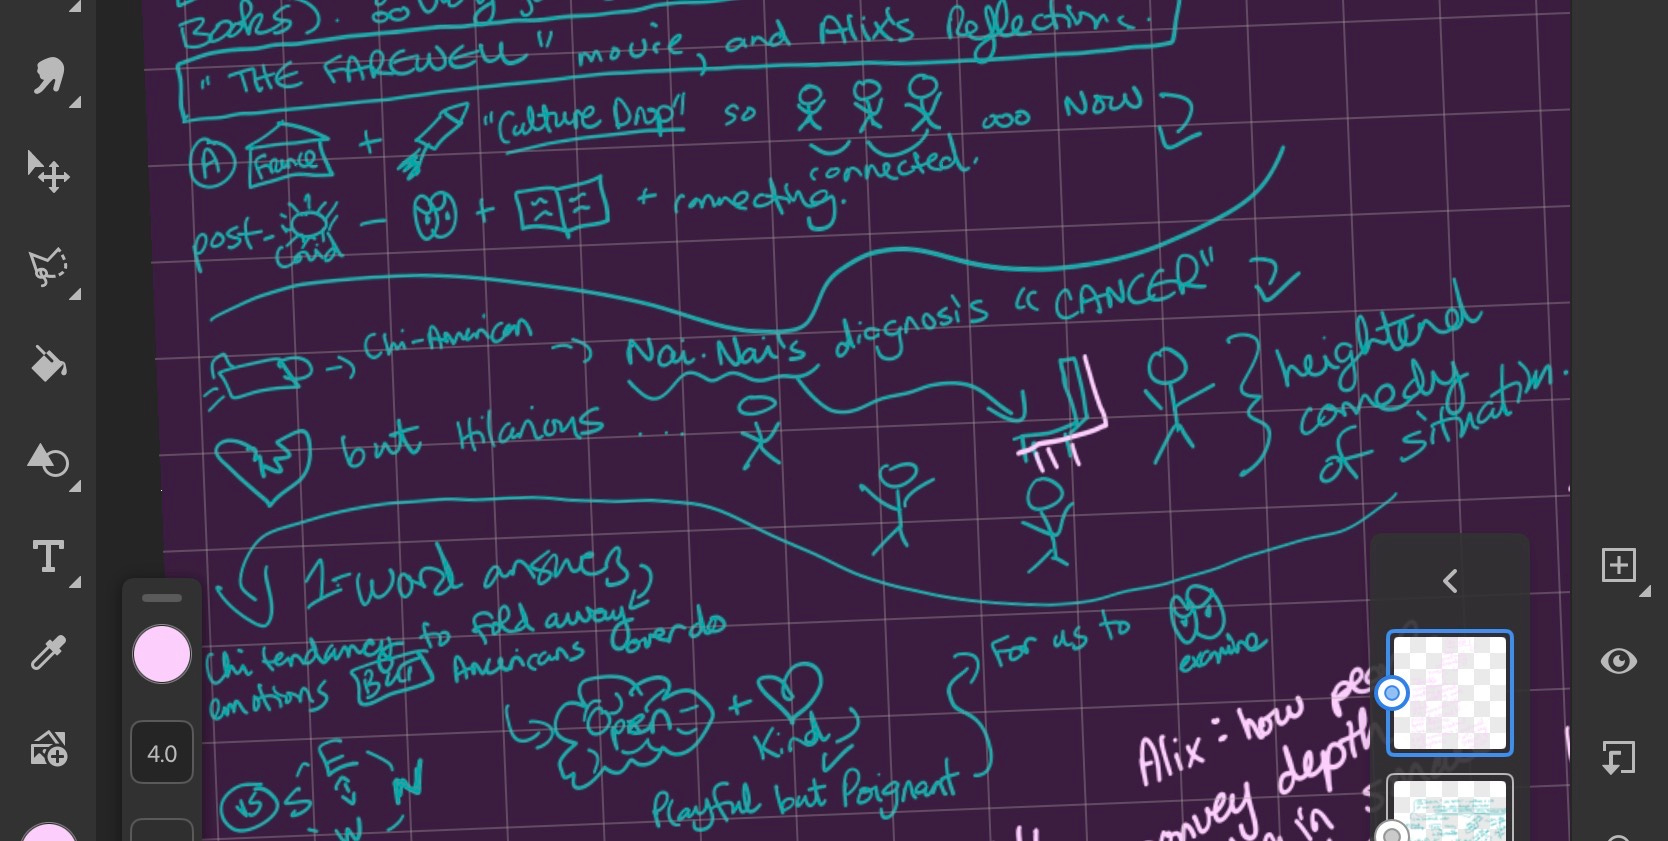 Books).
"THE FAREWELL" movie, and Alix's Reflections.
A France + "Culture Drop" so ... Now
connected.
post- Covid - + + connecting.
Chi-American → Nai.Nai's diagnosis "CANCER"
but Hilarious ...
heightend
comedy
of situation.
1-word answers
Chi tendancy to fold away
emotions BUT Americans overdo
Open + Kind
For us to
examine
VS S E N W
Playful but Poignant
Alix: how
convey depth
in
T
4.0